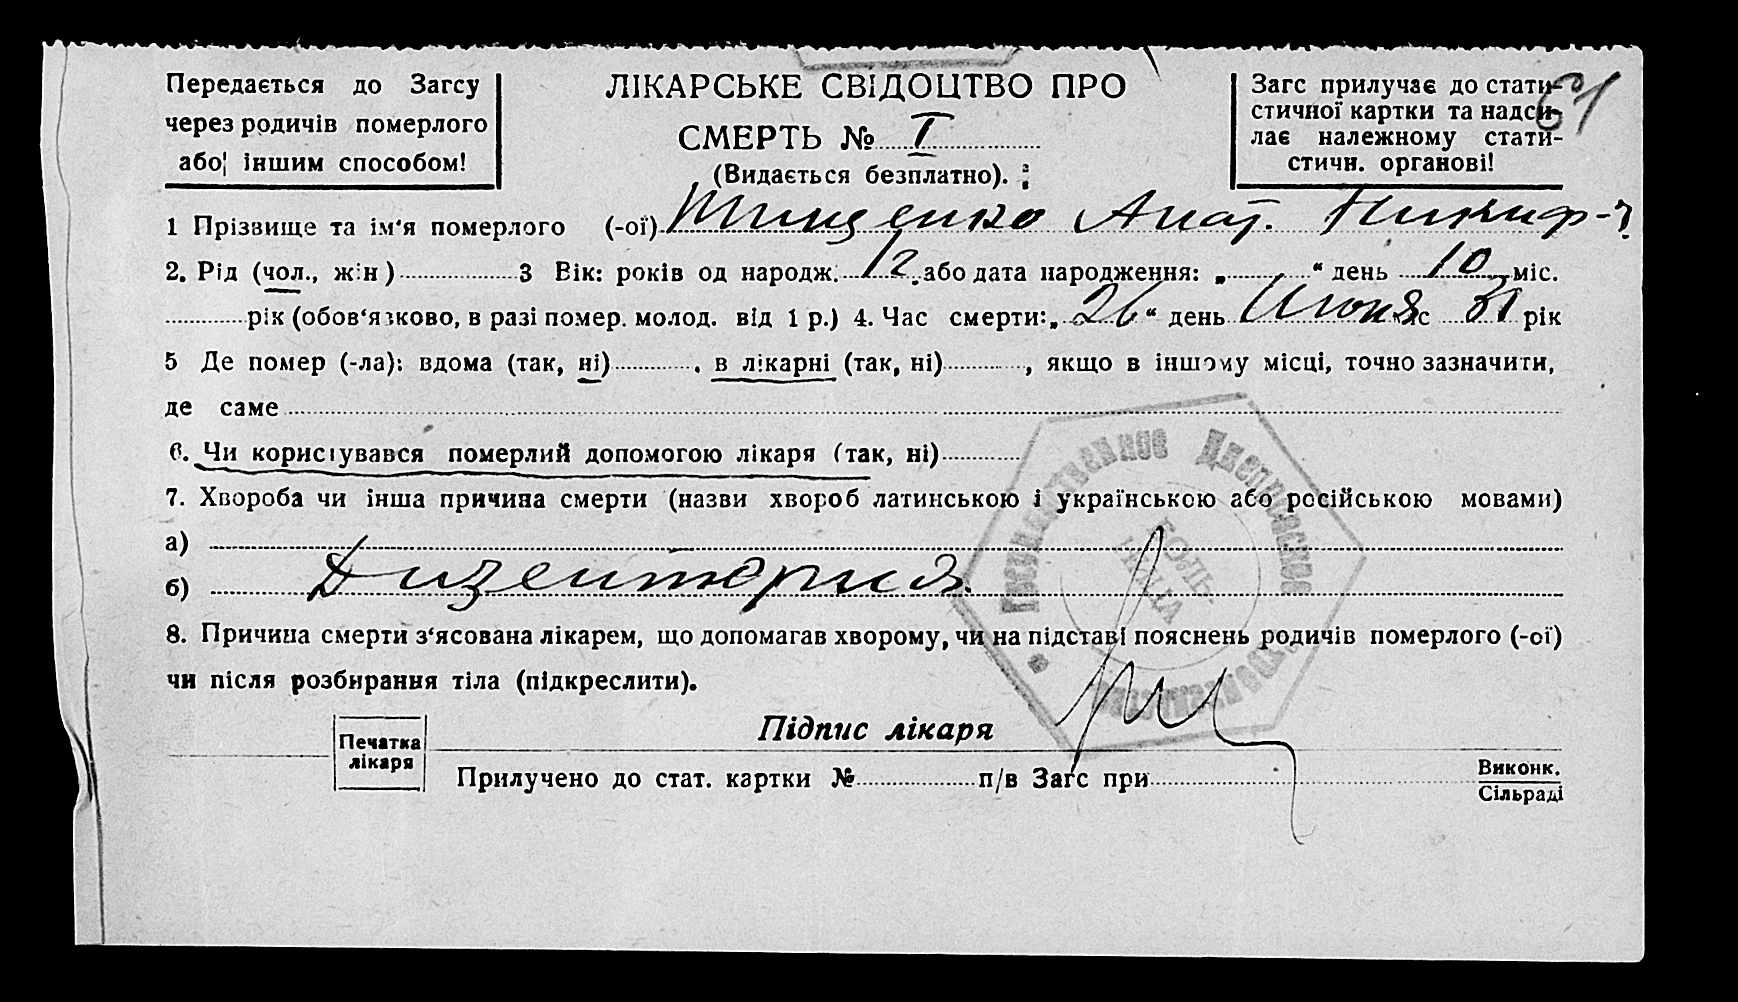 Передається до Загсу
через родичів померлого
або іншим способом!
ЛІКАРСЬКЕ СВІДОЦТВО ПРО
СМЕРТЬ № I
(Видається безплатно).
Загс прилучає до стати-
стичної картки та надси-
лає належному стати-
стичн. органові!
61
1 Прізвище та ім'я померлого (-ої) Тищенко Анат. Никиф-ч
2. Рід (чол., жін) 3 Вік: років од народж. 12 або дата народження: „ “ день 10 міс.
рік (обов'язково, в разі помер. молод. від 1 р.) 4. Час смерти: „26“ день Июня с 31 рік
5 Де помер (-ла): вдома (так, ні) , в лікарні (так, ні) , якщо в іншому місці, точно зазначити,
де саме
6. Чи користувався померлий допомогою лікаря (так, ні)
7. Хвороба чи інша причина смерти (назви хвороб латинською і українською або російською мовами)
а)
б) Дизентерия.
8. Причина смерти з'ясована лікарем, що допомагав хворому, чи на підставі пояснень родичів померлого (-ої)
чи після розбирання тіла (підкреслити).
Государственное Днепровское
БОЛЬ-
НИЦА
Печатка
лікаря
Підпис лікаря
Прилучено до стат. картки № п/в Загс при Виконк.
Сільраді